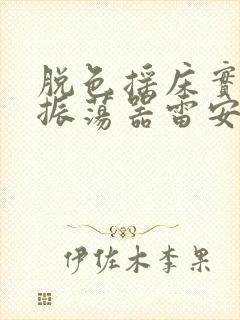 脱色摇床實
振荡器雷安
伊佐木李果